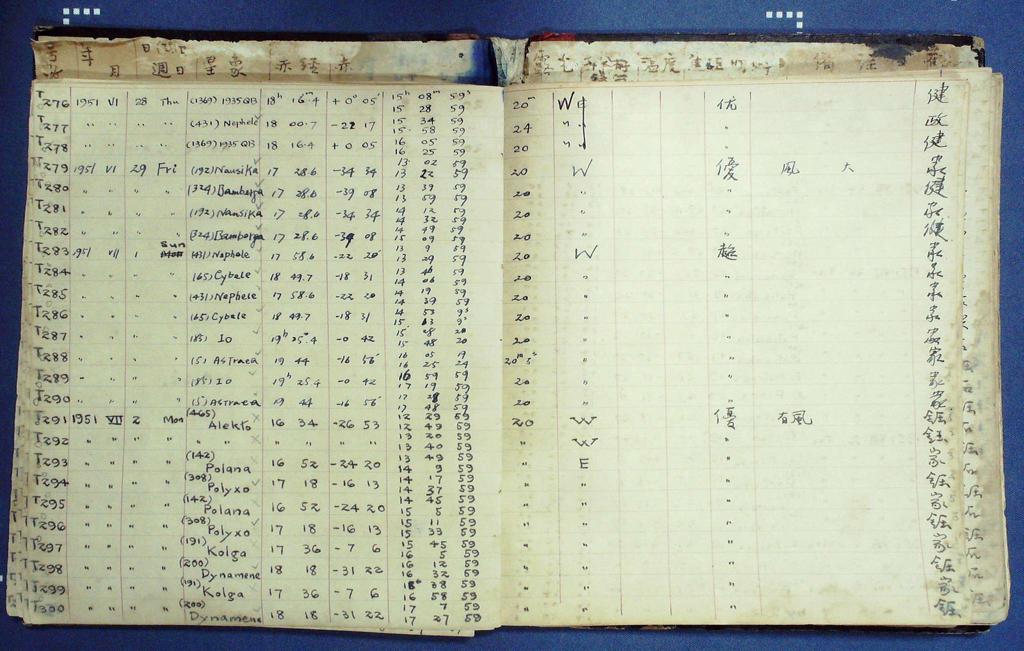 年 月 週日 星象 赤経 赤
T276 1951 VI 28 Thu (1369) 1935 QB 18h 16m.4 +0° 05' 15h 08m 59s 20m W 优 健
15 28 59
T277 " " " " (431) Nephele 18 00.7 -22 17 15 34 59 24 " " 政
15 58 59
T278 " " " " (1369) 1935 QB 18 16.4 +0 05 16 05 59 20 " " 健
16 25 59
T279 1951 VI 29 Fri (192) Nausika 17 28.6 -34 34 13 02 59 20 W 優 風 大 家
13 22 59
T280 " " " " (324) Bamberga 17 28.6 -39 08 13 39 59 20 " " 健
13 59 59
T281 " " " " (192) Nausika 17 28.6 -34 34 14 12 59 20 " " 家
14 32 59
T282 " " " " (324) Bamberga 17 28.6 -39 08 14 49 59 20 " " 健
15 09 59
T283 1951 VII 1 Sun (431) Nephele 17 58.6 -22 20 13 9 59 20 W 家
13 29 59
T284 " " " " (65) Cybele 18 49.7 -18 31 13 46 59 20 " " 家
14 06 59
T285 " " " " (431) Nephele 17 58.6 -22 20 14 19 59 20 " " 家
14 39 59
T286 " " " " (65) Cybele 18 49.7 -18 31 14 53 20 " " 家
15 13
T287 " " " " (85) Io 19h 25.4 -0 42 15 28 20 20 " " 家
15 48 20
T288 " " " " (5) Astraea 19 44 -16 56 16 05 19 20m 5s " " 家
16 25 24
T289 " " " " (85) Io 19h 25.4 -0 42 16 59 59 20 " " 家
17 19 59
T290 " " " " (5) Astraea 19 44 -16 56 17 28 59 20 " " 家
17 48 59
T291 1951 VII 2 Mon (465) Alekto 16 34 -26 53 12 29 59 20 W 優 有風 鈺
12 49 59
T292 " " " " " " " " " 13 20 59 " W " 鈺
13 40 59
T293 " " " " (142) Polana 16 52 -24 20 13 49 59 " E " 家
14 9 59
T294 " " " " (308) Polyxo 17 18 -16 13 14 17 59 " " 鈺
14 37 59
T295 " " " " (142) Polana 16 52 -24 20 14 45 59 " " 家
15 5 59
T296 " " " " (308) Polyxo 17 18 -16 13 15 11 59 " " 鈺
15 33 59
T297 " " " " (191) Kolga 17 36 -7 6 15 45 59 " " 家
16 5 59
T298 " " " " (200) Dynamene 18 18 -31 22 16 12 59 " " 鈺
16 32 59
T299 " " " " (191) Kolga 17 36 -7 6 38 59 " " 家
16 58 59
T300 " " " " (200) Dynamene 18 18 -31 22 17 7 59 " " 鈺
17 27 59